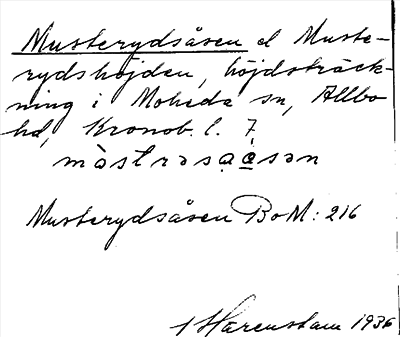 Musterydsåsen el Muste-
rydshöjden, höjdsträck-
ning i Moheda sn, Allbo
hd, Kronob. l. 7
Musterydsåsen BoM: 216
Harenstam 1936